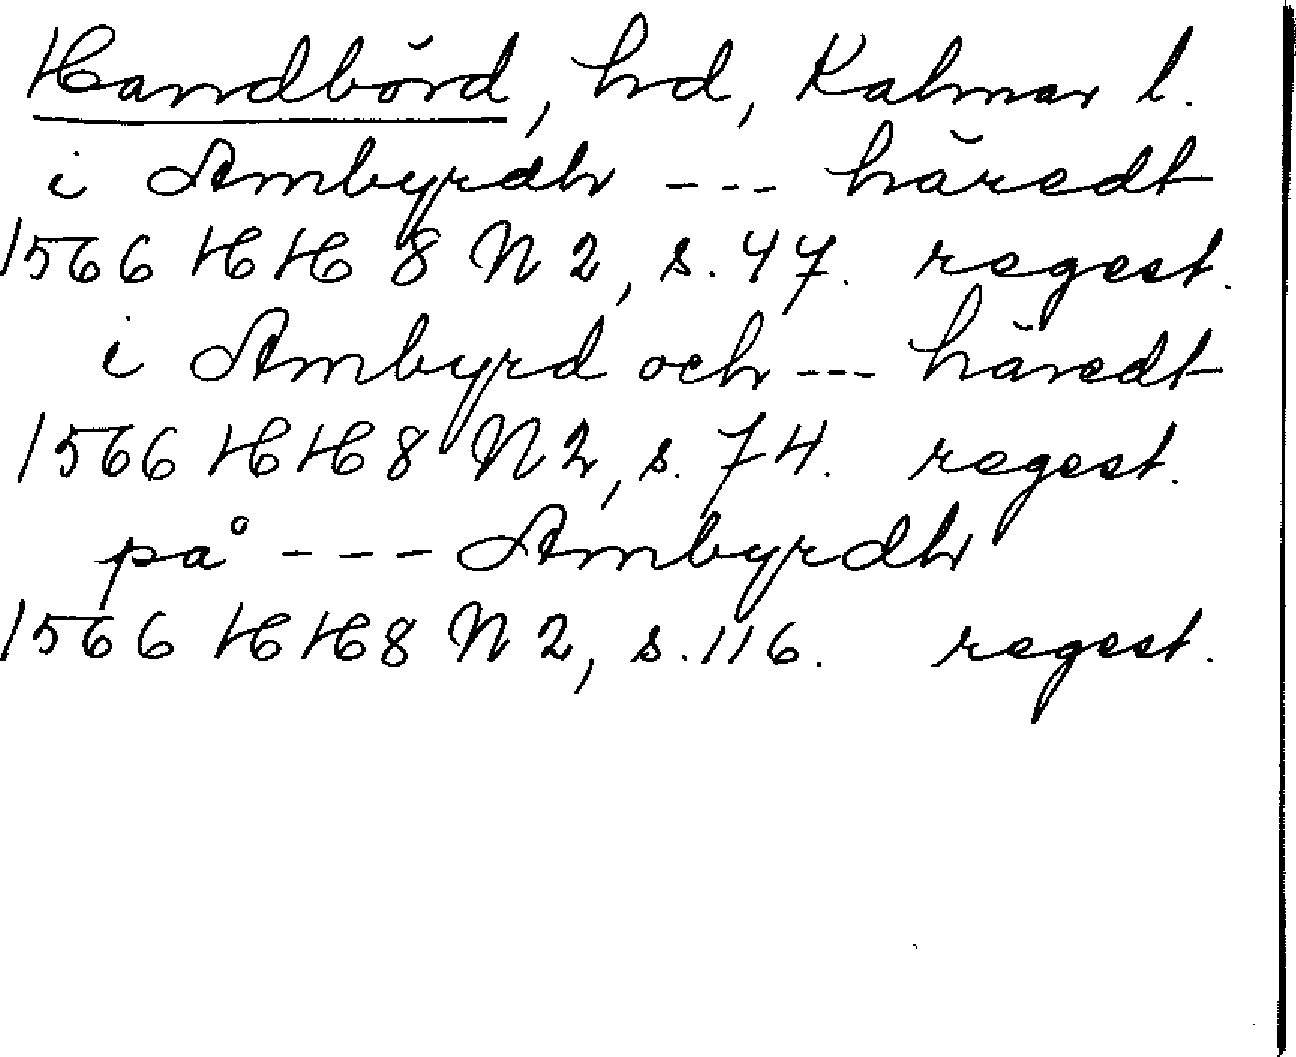 Handbörd, hd, Kalmar l.
i Ambyrdh --- häredt
1566 HH 8 N 2, s. 47. regest.
i Ambyrd och --- häredt
1566 HH 8 N 2, s. 74. regest.
på --- Ambyrdh
1566 HH 8 N 2, s. 116. regest.